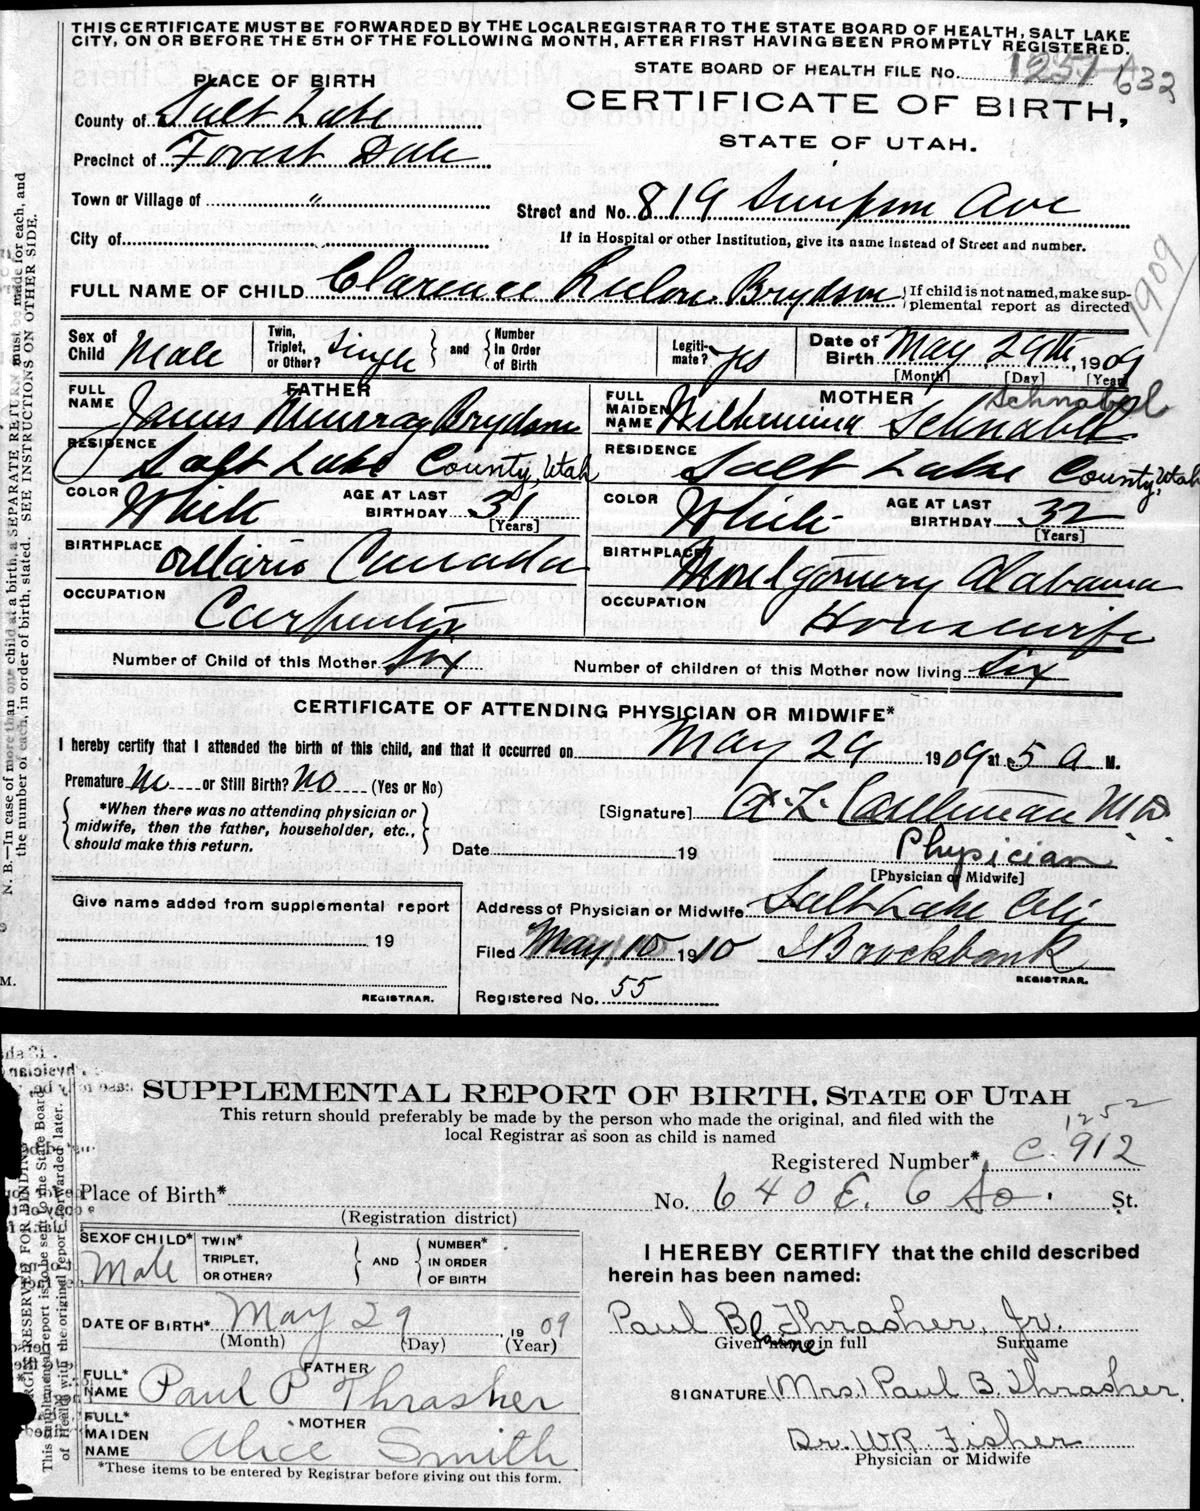 THIS CERTIFICATE MUST BE FORWARDED BY THE LOCAL REGISTRAR TO THE STATE BOARD OF HEALTH, SALT LAKE
CITY, ON OR BEFORE THE 5TH OF THE FOLLOWING MONTH, AFTER FIRST HAVING BEEN PROMPTLY REGISTERED.
STATE BOARD OF HEALTH FILE No. 1251 632
PLACE OF BIRTH
CERTIFICATE OF BIRTH,
County of Salt Lake
STATE OF UTAH.
Precinct of Forest Dale
Town or Village of "
Street and No. 819 Simpson Ave
City of
If in Hospital or other Institution, give its name instead of Street and number.
1909
FULL NAME OF CHILD Clarence Brydson } If child is not named, make sup-
plemental report as directed
Sex of Child Male Twin, Triplet, or Other? Single } and { Number In Order of Birth Legiti-mate? yes Date of Birth May 29th, 1909
[Month] [Day] [Year]
FATHER MOTHER Schnabel
FULL NAME James Murray Brydson FULL MAIDEN NAME Wilhemina Schnabel
RESIDENCE Salt Lake County, Utah RESIDENCE Salt Lake County, Utah
COLOR White AGE AT LAST BIRTHDAY 31 [Years] COLOR White AGE AT LAST BIRTHDAY 32 [Years]
BIRTHPLACE Ontario Canada BIRTHPLACE Montgomery Alabama
OCCUPATION Carpenter OCCUPATION Housewife
Number of Child of this Mother Six Number of children of this Mother now living Six
CERTIFICATE OF ATTENDING PHYSICIAN OR MIDWIFE*
I hereby certify that I attended the birth of this child, and that it occurred on May 29 1909 at 5 a M.
Premature No or Still Birth? No (Yes or No)
{ *When there was no attending physician or
midwife, then the father, householder, etc.,
should make this return. }
[Signature] MD
Date 19 Physician
[Physician or Midwife]
Give name added from supplemental report
19
REGISTRAR.
Address of Physician or Midwife Salt Lake City
Filed May 10 1910 Brockbank
REGISTRAR.
Registered No. 55
N. B.—In case of more than one child at a birth, a SEPARATE RETURN must be made for each, and
the number of each, in order of birth, stated. SEE INSTRUCTIONS ON OTHER SIDE.
SUPPLEMENTAL REPORT OF BIRTH, STATE OF UTAH
This return should preferably be made by the person who made the original, and filed with the
local Registrar as soon as child is named
1252
Registered Number* C. 912
Place of Birth* No. 640 E. 6 So. St.
(Registration district)
SEX OF CHILD* Male TWIN* TRIPLET, OR OTHER? } AND { NUMBER* IN ORDER OF BIRTH
I HEREBY CERTIFY that the child described
herein has been named:
DATE OF BIRTH* May 29, 1909
(Month) (Day) (Year)
Paul Blaine Thrasher, Jr.
Given name in full Surname
FATHER
FULL* NAME Paul P Thrasher
SIGNATURE (Mrs.) Paul B. Thrasher
MOTHER
FULL* MAIDEN NAME Alice Smith
Dr. W.R. Fisher
Physician or Midwife
*These items to be entered by Registrar before giving out this form.
MARGIN RESERVED FOR BINDING
This supplemental report is to be sent to the State Board
of Health with the original report, if forwarded later.